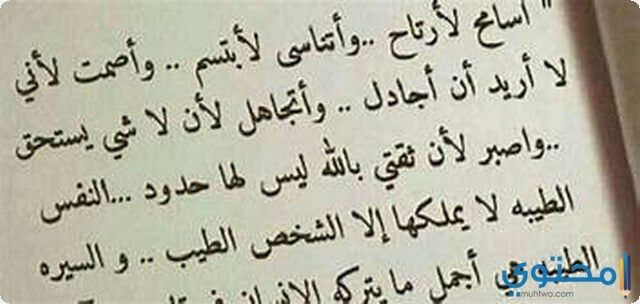 " أسامح لأرتاح ..وأتناسى لأبتسم .. وأصمت لأني
لا أريد أن أجادل .. وأتجاهل لأن لا شي يستحق
..واصبر لأن ثقتي بالله ليس لها حدود ...النفس
الطيبه لا يملكها إلا الشخص الطيب .. و السيره
الطيبه هي أجمل ما يتركه الإنسان في
محتوى
muhtwa.com